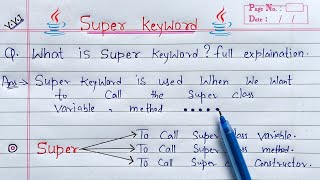 V.V.I
Page No.:
Date: / /
Super Keyword
Q. What is Super Keyword? full explaination.
Ans → Super Keyword is used When We Want
to Call the Super class
Variable, method ......
Super
To Call Super class Variable.
To Call Super class method.
To Call Super Constructor.